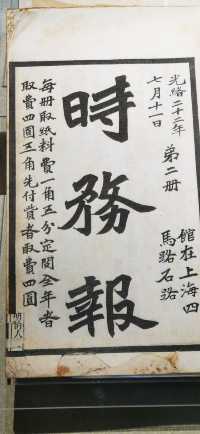 光緒二十二年
七月十一日
第二冊
館在上海四
馬路石路
時務報
每冊取紙料費一角五分定閱全年者
取費四圓三角先付貲者取費四圓